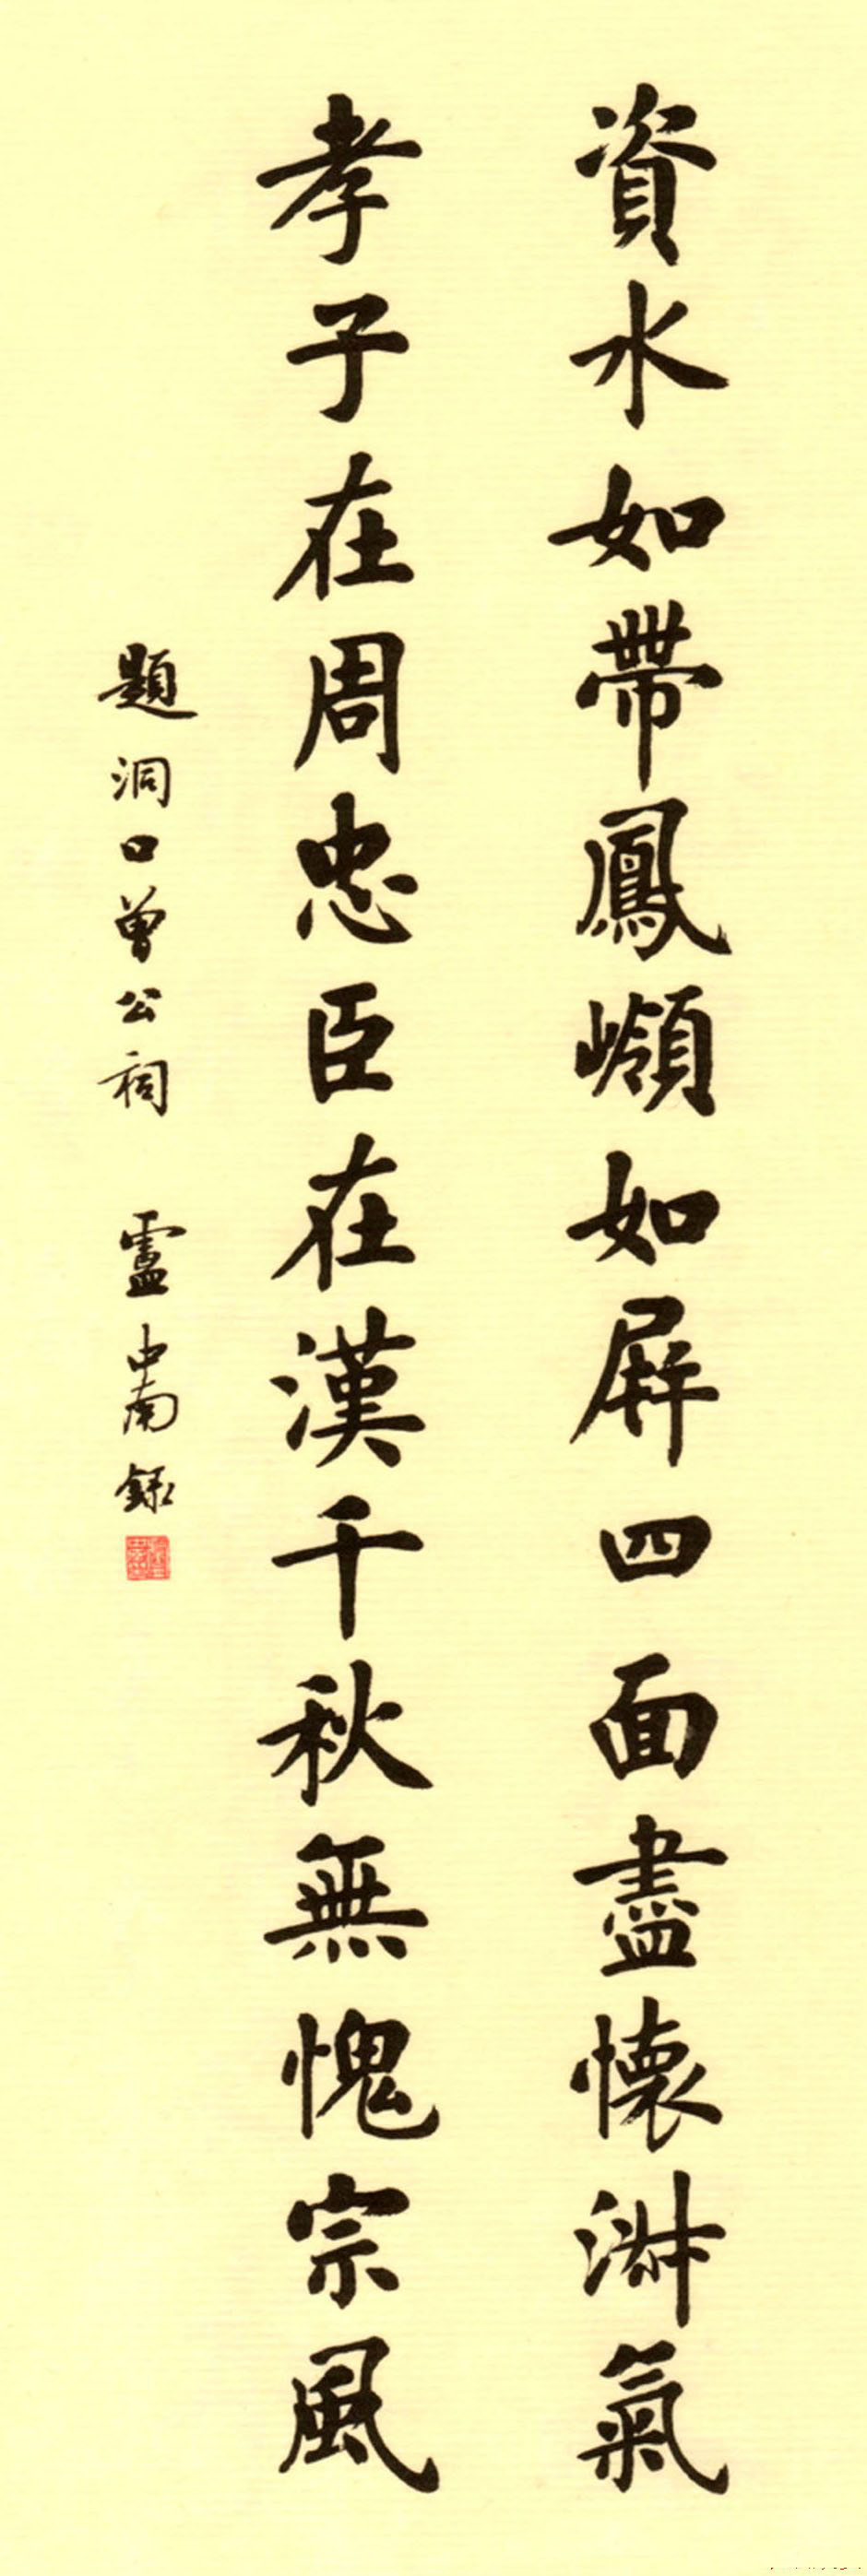 資水如帶鳳嶺如屏四面盡懷淑氣
孝子在周忠臣在漢千秋無愧宗風
題洞口曾公祠 盧中南錄